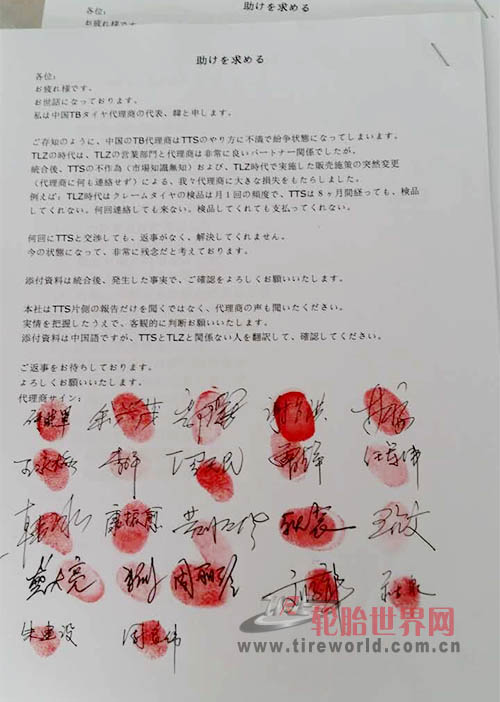 各位：
助けを求める
お疲れ様です。
助けを求める
各位：
お疲れ様です。
お世話になっております。
私は中国TBタイヤ代理商の代表、韓と申します。
ご存知のように、中国のTB代理商はTTSのやり方に不満で紛争状態になってしまいます。
TLZの時代は、TLZの営業部門と代理商は非常に良いパートナー関係でしたが、
統合後、TTSの不作為（市場知識無知）および、TLZ時代で実施した販売施策の突然変更
（代理商に何も連絡せず）による、我々代理商に大きな損失をもたらしました。
例えば、TLZ時代はクレームタイヤの検品は月１回の頻度で、TTSは８ヶ月間経っても、検品
してくれない。何回連絡しても来ない。検品してくれても支払ってくれない。
何回にTTSと交渉しても、返事がなく、解決してくれません。
今の状態になって、非常に残念だと考えております。
添付資料は統合後、発生した事実で、ご確認をよろしくお願いいたします。
本社はTTS片側の報告だけを聞くではなく、代理商の声も聞いたください。
実情を把握したうえで、客観的に判断お願いいたします。
添付資料は中国語ですが、TTSとTLZと関係ない人を翻訳して、確認してください。
ご返事をお待ちしております。
よろしくお願いいたします。
代理商サイン：
朱建设
轮胎世界网
www.tireworld.com.cn